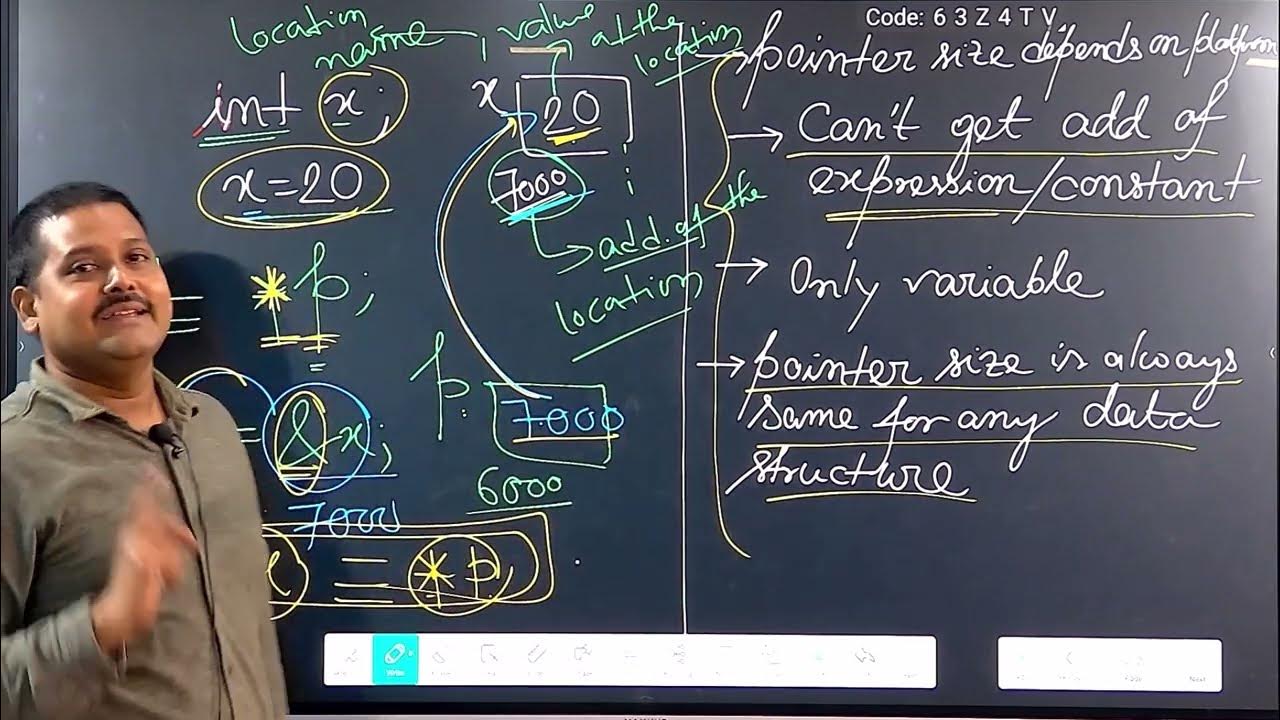 Code: 6 3 Z 4 T V
location
name, value at the
location
int x;
x = 20
x 20
7000
add. of the
location
*p;
p:
7000
6000
= &x;
7000
x = *p;
→ pointer size depends on platform
→ Can't get add of
expression/constant
→ Only variable
→ pointer size is always
same for any data
structure
Write
Next